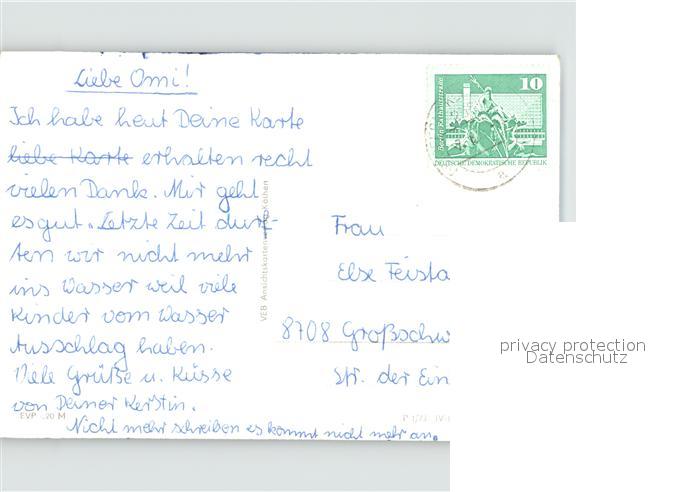 Liebe Omi!
Ich habe heut Deine Karte
liebe Karte erhalten recht
vielen Dank. Mir geht
es gut. Letzte Zeit durf-
ten wir nicht mehr
ins Wasser weil viele
Kinder vom Wasser
Ausschlag haben.
Viele Grüße u. Küsse
von Deiner Kerstin.
Nicht mehr schreiben es kommt nicht mehr an.
EVP -,20 M
VEB Ansichtskarten Köthen
10
Berlin, Rathausstraße
DEUTSCHE DEMOKRATISCHE REPUBLIK
Frau
Else Feista
8708 Großschw
Str. der Ein
privacy protection
Datenschutz